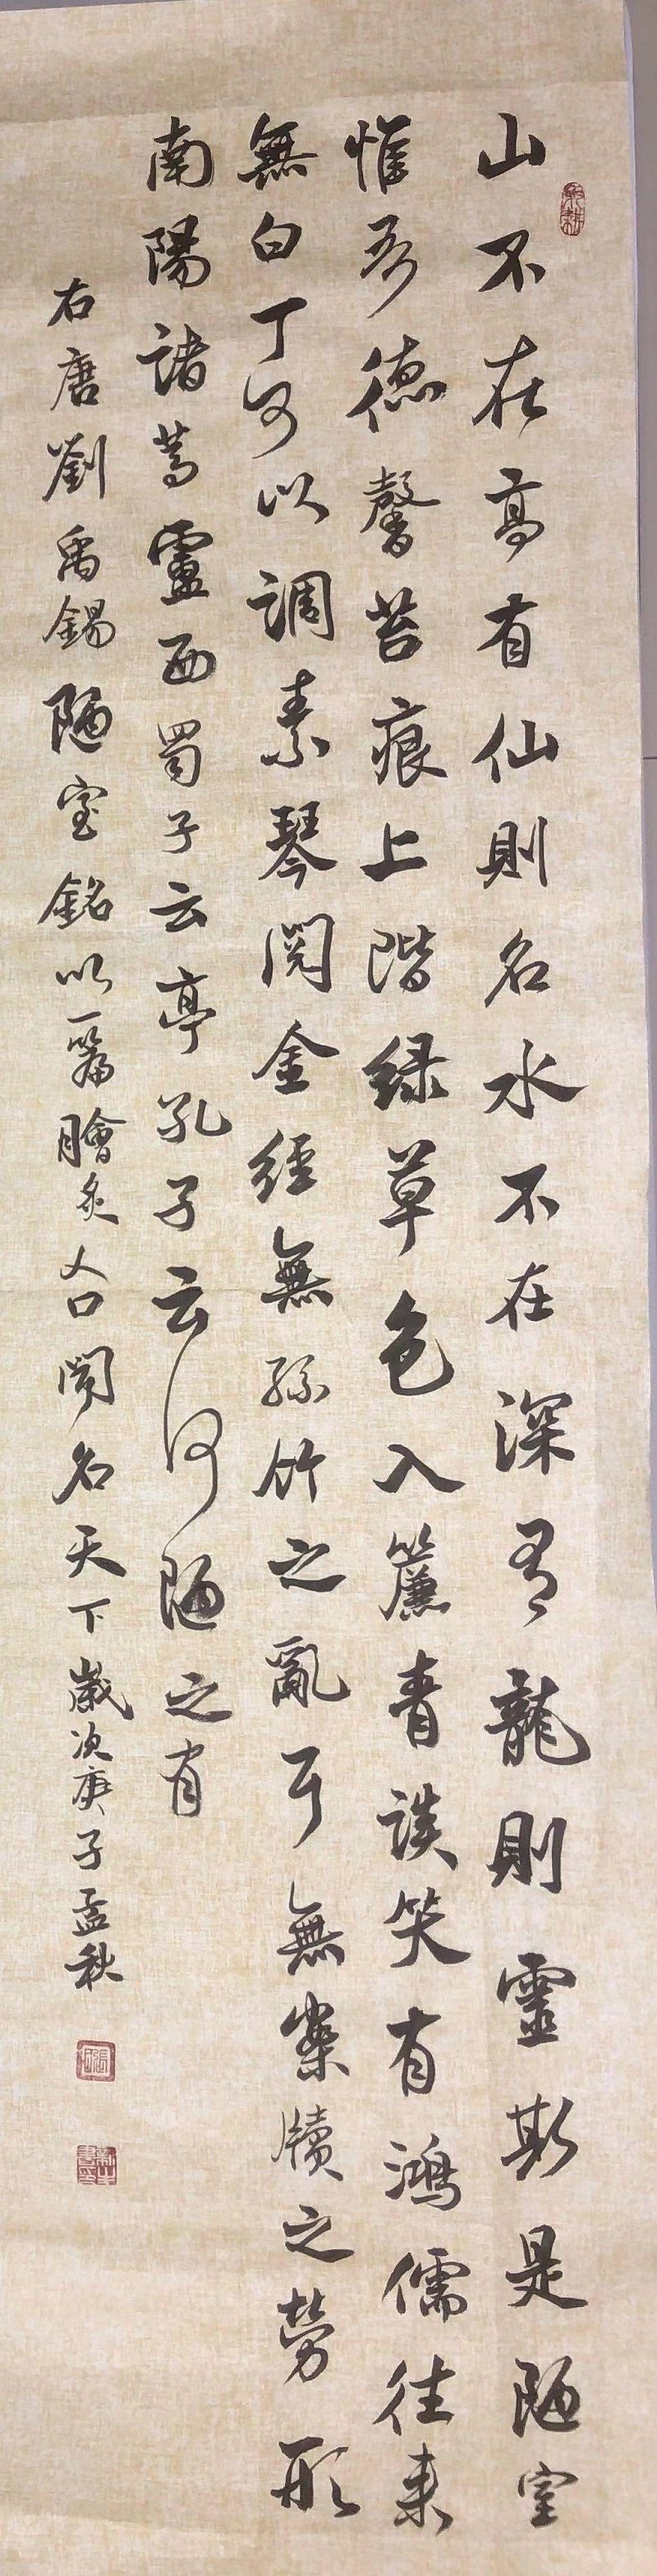 山不在高有仙則名水不在深有龍則靈斯是陋室
惟吾德馨苔痕上階緑草色入簾青談笑有鴻儒往来
無白丁可以調素琴閱金經無絲竹之亂耳無案牘之勞形
南陽諸葛廬西蜀子云亭孔子云何陋之有
右唐劉禹錫陋室銘以一篇膾炙人口聞名天下歲次庚子孟秋